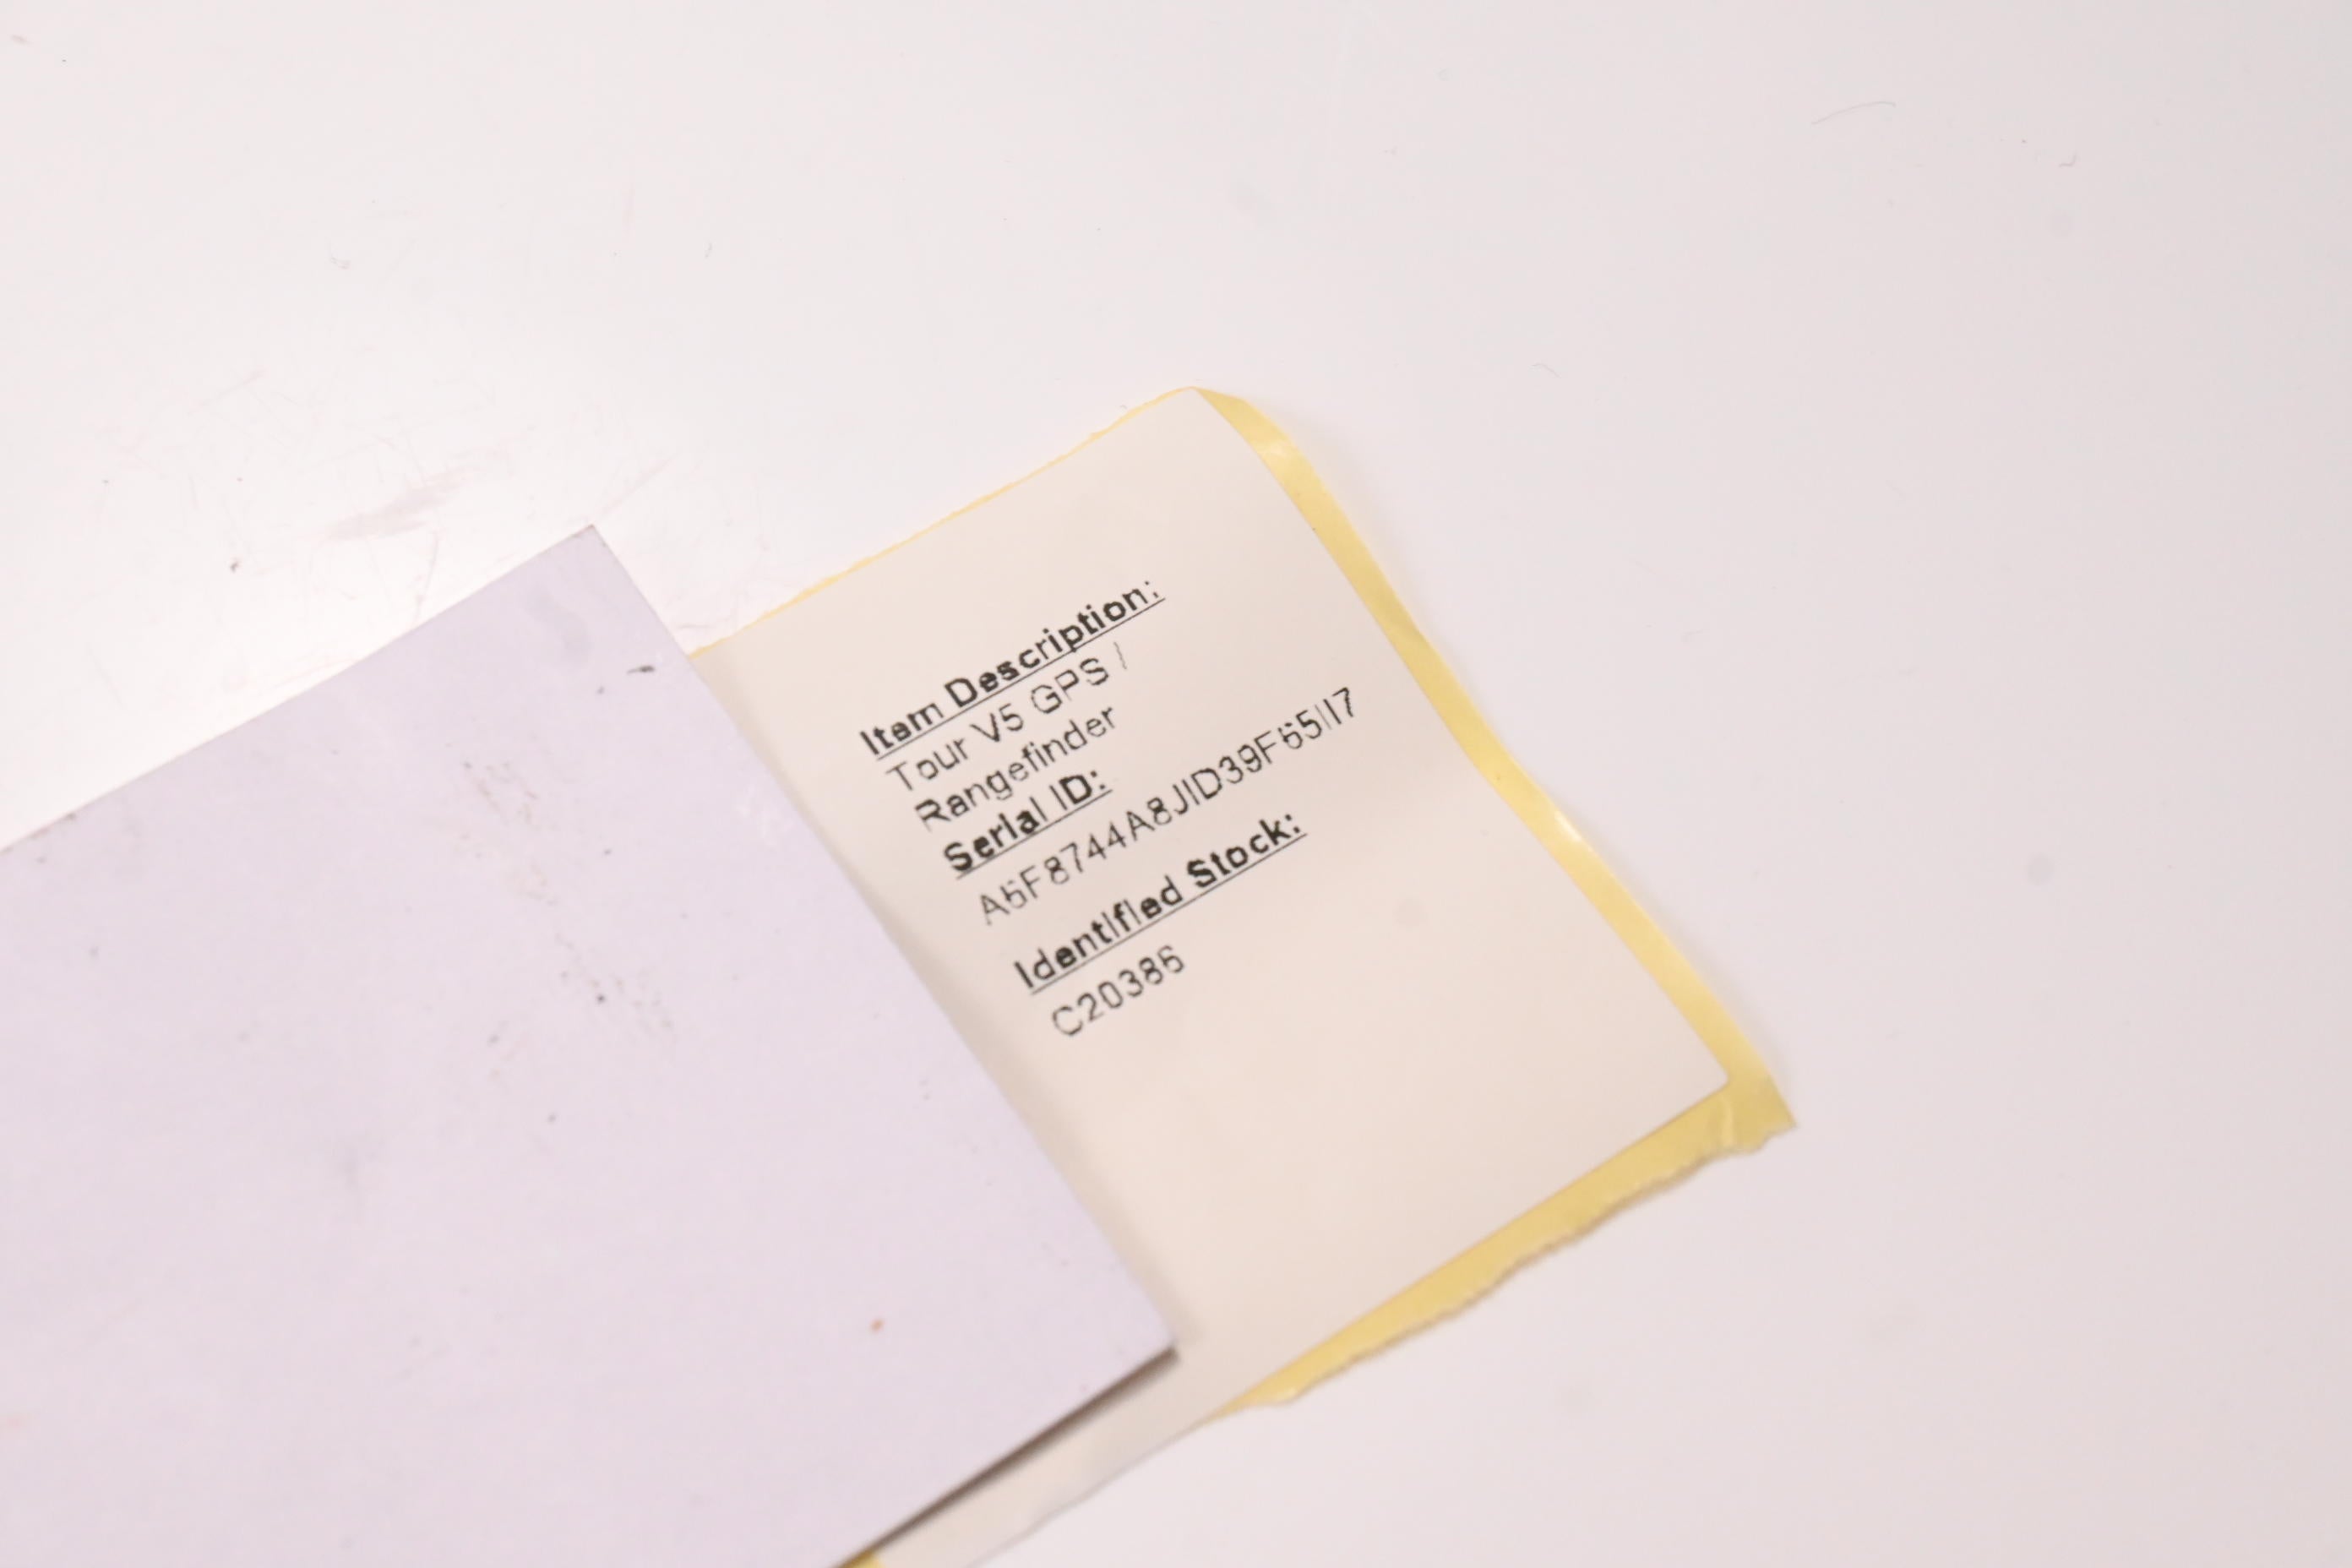 Item Description:
Tour V5 GPS /
Rangefinder
Serial ID:
Identified Stock:
C20386